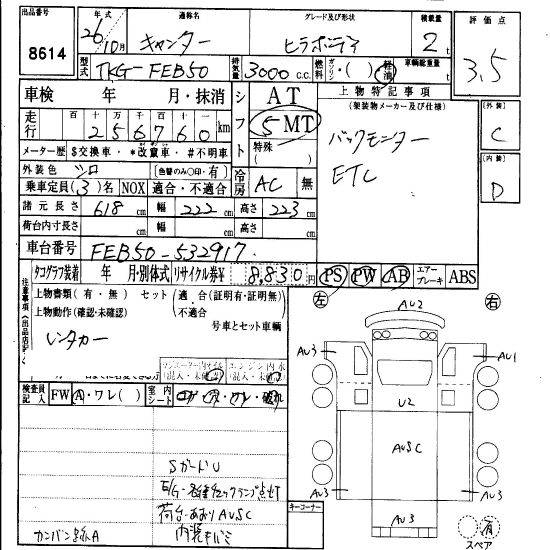 出品番号
8614
年式 通称名 グレード及び形状 積載量 評価点
26年10月 キャンター ヒラボディ 2 t 3,5
型式 TKG-FEB50 排気量 3000 c.c. 燃料 ガソリン・( )・軽油 車輌総重量 t
車検 年 月・抹消 シフト AT
上物特記事項
(架装物メーカー及び仕様)
走行 百 十 万 千 百 十 一
256760 km
5 MT
特殊( )
バックモニター
ETC
外装 C
内装 D
メーター歴 $交換車・*改ざん車・#不明車
外装色 シロ (色替のみ〇印・有)
乗車定員(3)名 NOX 適合・不適合 冷房 AC 無
諸元長さ 618 cm 幅 222 cm 高さ 223 cm
荷台内寸長さ cm 幅 cm 高さ cm
車台番号 FEB50-532917
タコグラフ装着 年 月・別体式 リサイクル券¥ 8,830円
PS PW AB エアーブレーキ ABS
注意事項(出品店記入)
上物書類(有・無) セット(適合(証明有・証明無)
上物動作(確認・未確認) 不適合
号車とセット車輌
レンタカー
左 右
AU2
AU3 AU1
U2
AUSC
AU3 AU3
AU3
検査員記入 FW A・ワレ( ) 室内シート コゲ・穴・ワレ・破れ
SガードU
E/G・各種チェックランプ点灯
荷台・あおりAUSC
カンバン跡A 内装キバミ
キーコーナー
有
スペア